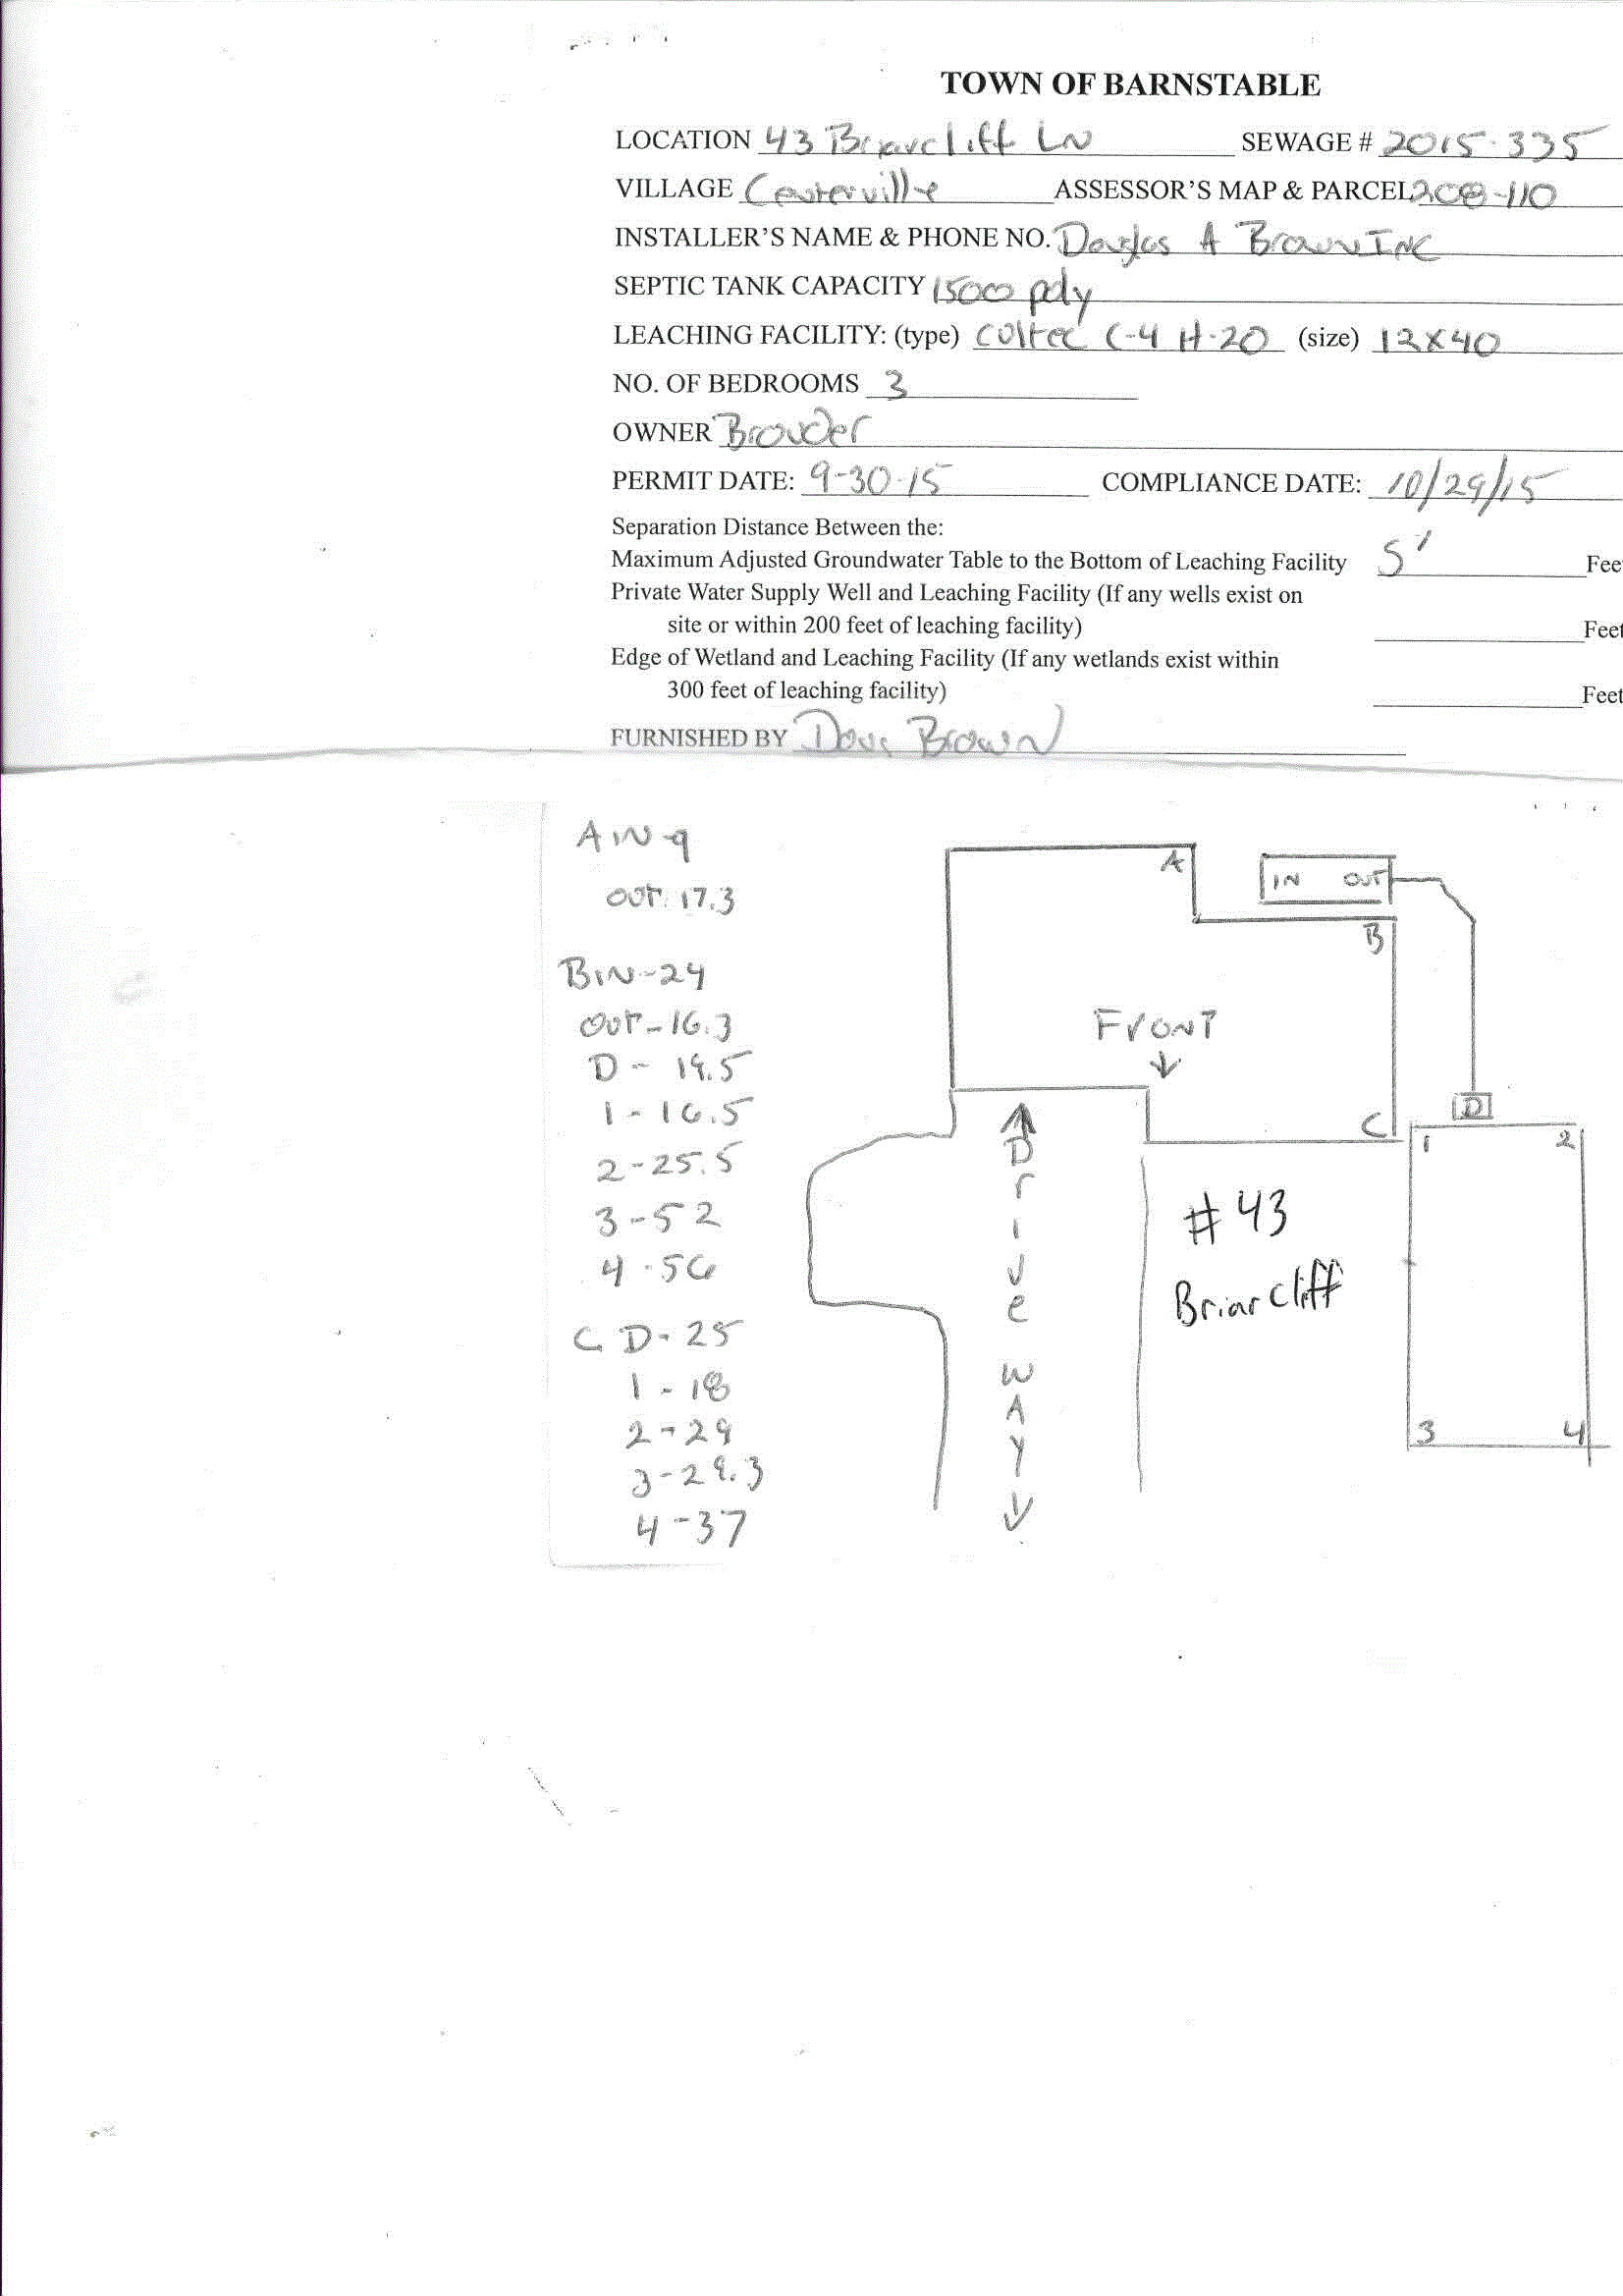 TOWN OF BARNSTABLE
LOCATION 43 Briarcliff LN SEWAGE # 2015-335
VILLAGE Centerville ASSESSOR'S MAP & PARCEL 208-110
INSTALLER'S NAME & PHONE NO. Douglas A Brown INC
SEPTIC TANK CAPACITY 1500 poly
LEACHING FACILITY: (type) Cultec C-4 H-20 (size) 12X40
NO. OF BEDROOMS 3
OWNER Browder
PERMIT DATE: 9-30-15 COMPLIANCE DATE: 10/29/15
Separation Distance Between the:
Maximum Adjusted Groundwater Table to the Bottom of Leaching Facility 5' Fee
Private Water Supply Well and Leaching Facility (If any wells exist on
site or within 200 feet of leaching facility) Feet
Edge of Wetland and Leaching Facility (If any wetlands exist within
300 feet of leaching facility) Feet
FURNISHED BY Doug Brown
A IN-9
OUT-17.3
B IN-24
OUT-16.3
D-19.5
1-16.5
2-25.5
3-52
4-56
C D-25
1-18
2-29
3-29.3
4-37
A
IN OUT
B
FRONT
D
C
1 2
Drive WAY
#43
Briarcliff
3 4